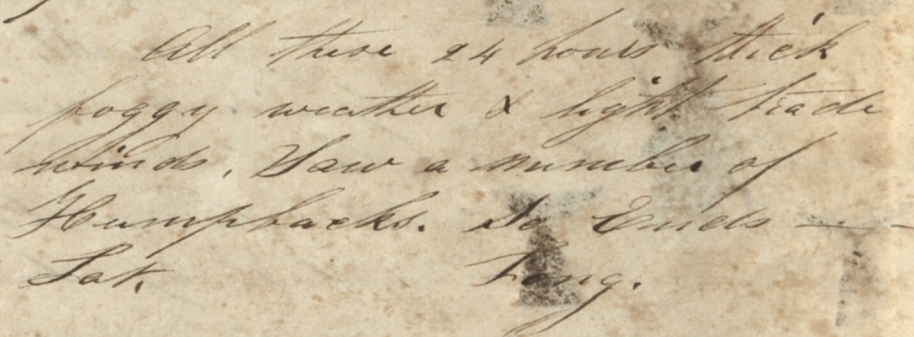 All these 24 hours thick
foggy weather & light trade
winds. Saw a number of
Humpbacks. So Ends —
Lat. Long.